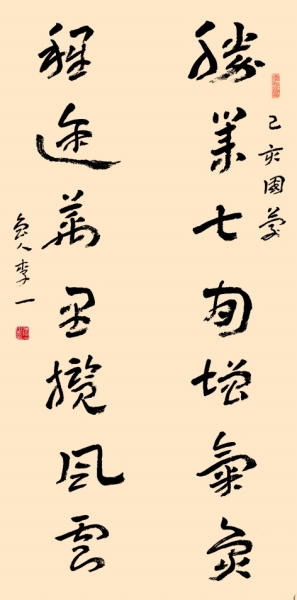 己亥國慶
勝業七旬增氣象
程途萬里攬風雲
人李一